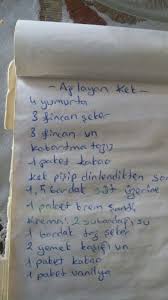 - Ağlayan Kek -
4 yumurta
3 fincan şeker
3 fincan un
kabartma tozu
1 paket kakao
Kek pişip dinlendikten son
1,5 bardak süt üzerine
1 paket krem şanti
Krema: 2 subardağı su
1 bardak toz şeker
2 yemek kaşığı un
1 paket kakao
1 paket vanilya